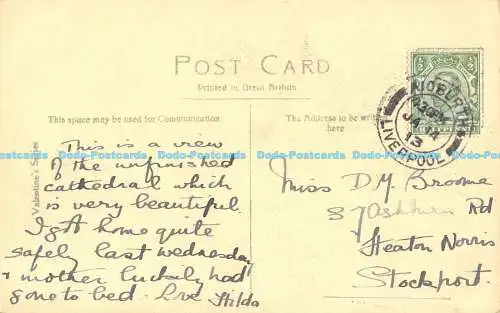 POST CARD
Printed in Great Britain
This space may be used for Communication
The Address to be written here
Valentine's Series
AIGBURTH
JA 14
13
LIVERPOOL
This is a view
of the unfinished
cathedral which
is very beautiful.
I got home quite
safely last Wednesday
& mother luckily had
gone to bed. Love Hilda
Miss D M Broome
37 Ashburn Rd
Heaton Norris
Stockport.
Dodo-Postcards Dodo-Postcards Dodo-Postcards Dodo-Postcards Dodo-Postcards Dodo-Postcards